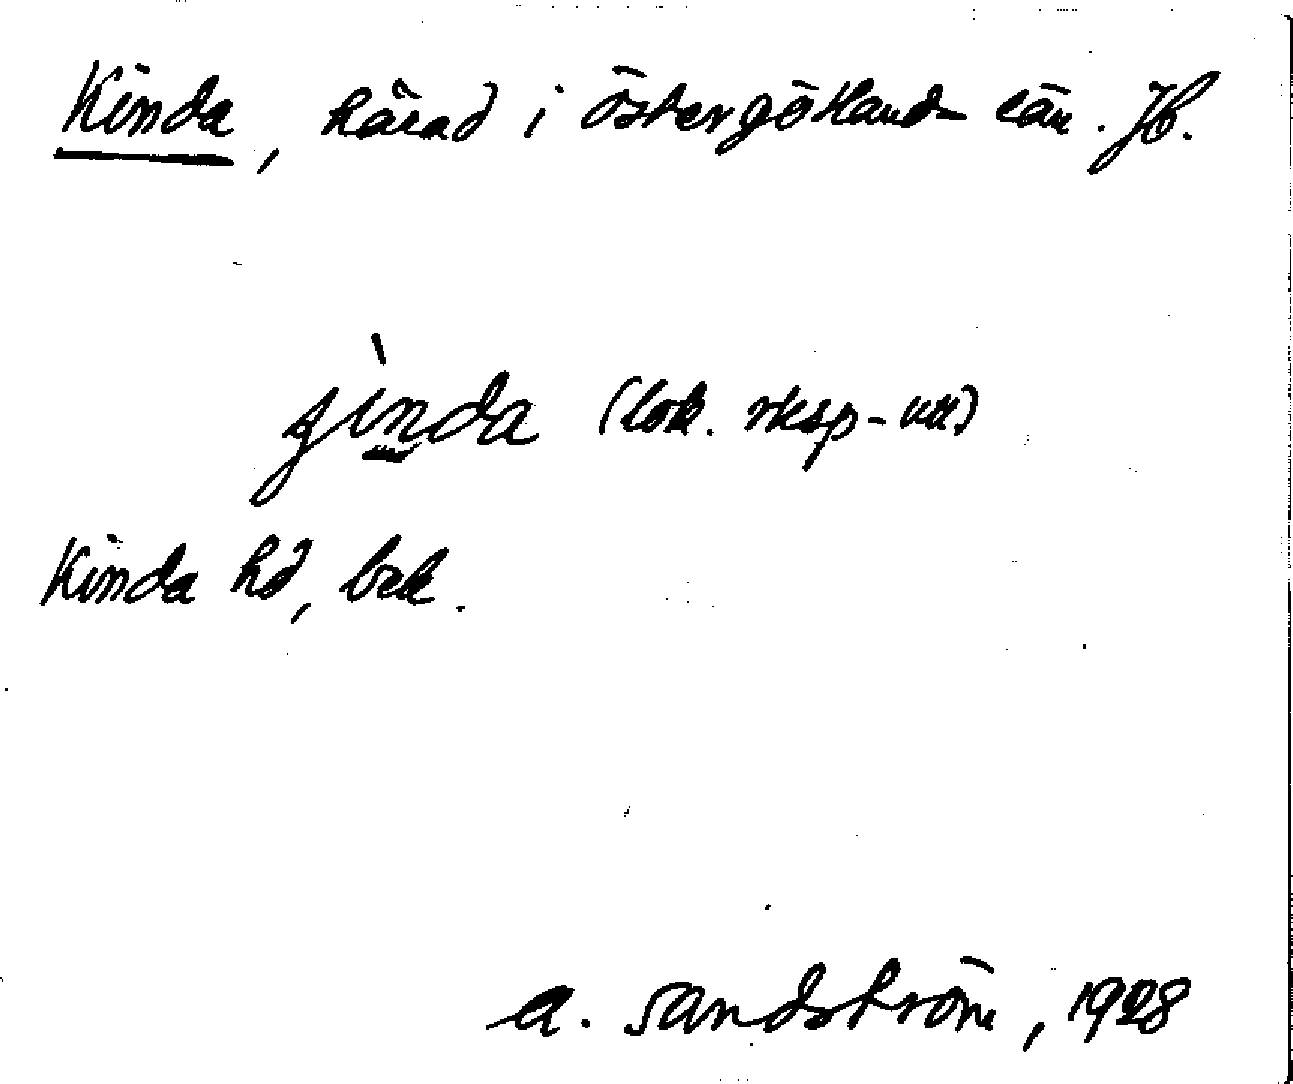 Kinda, härad i Östergötlands län. Jb.
jìnda (lok. rksp-utt)
Kinda hd, bek.
A. Sandström, 1928